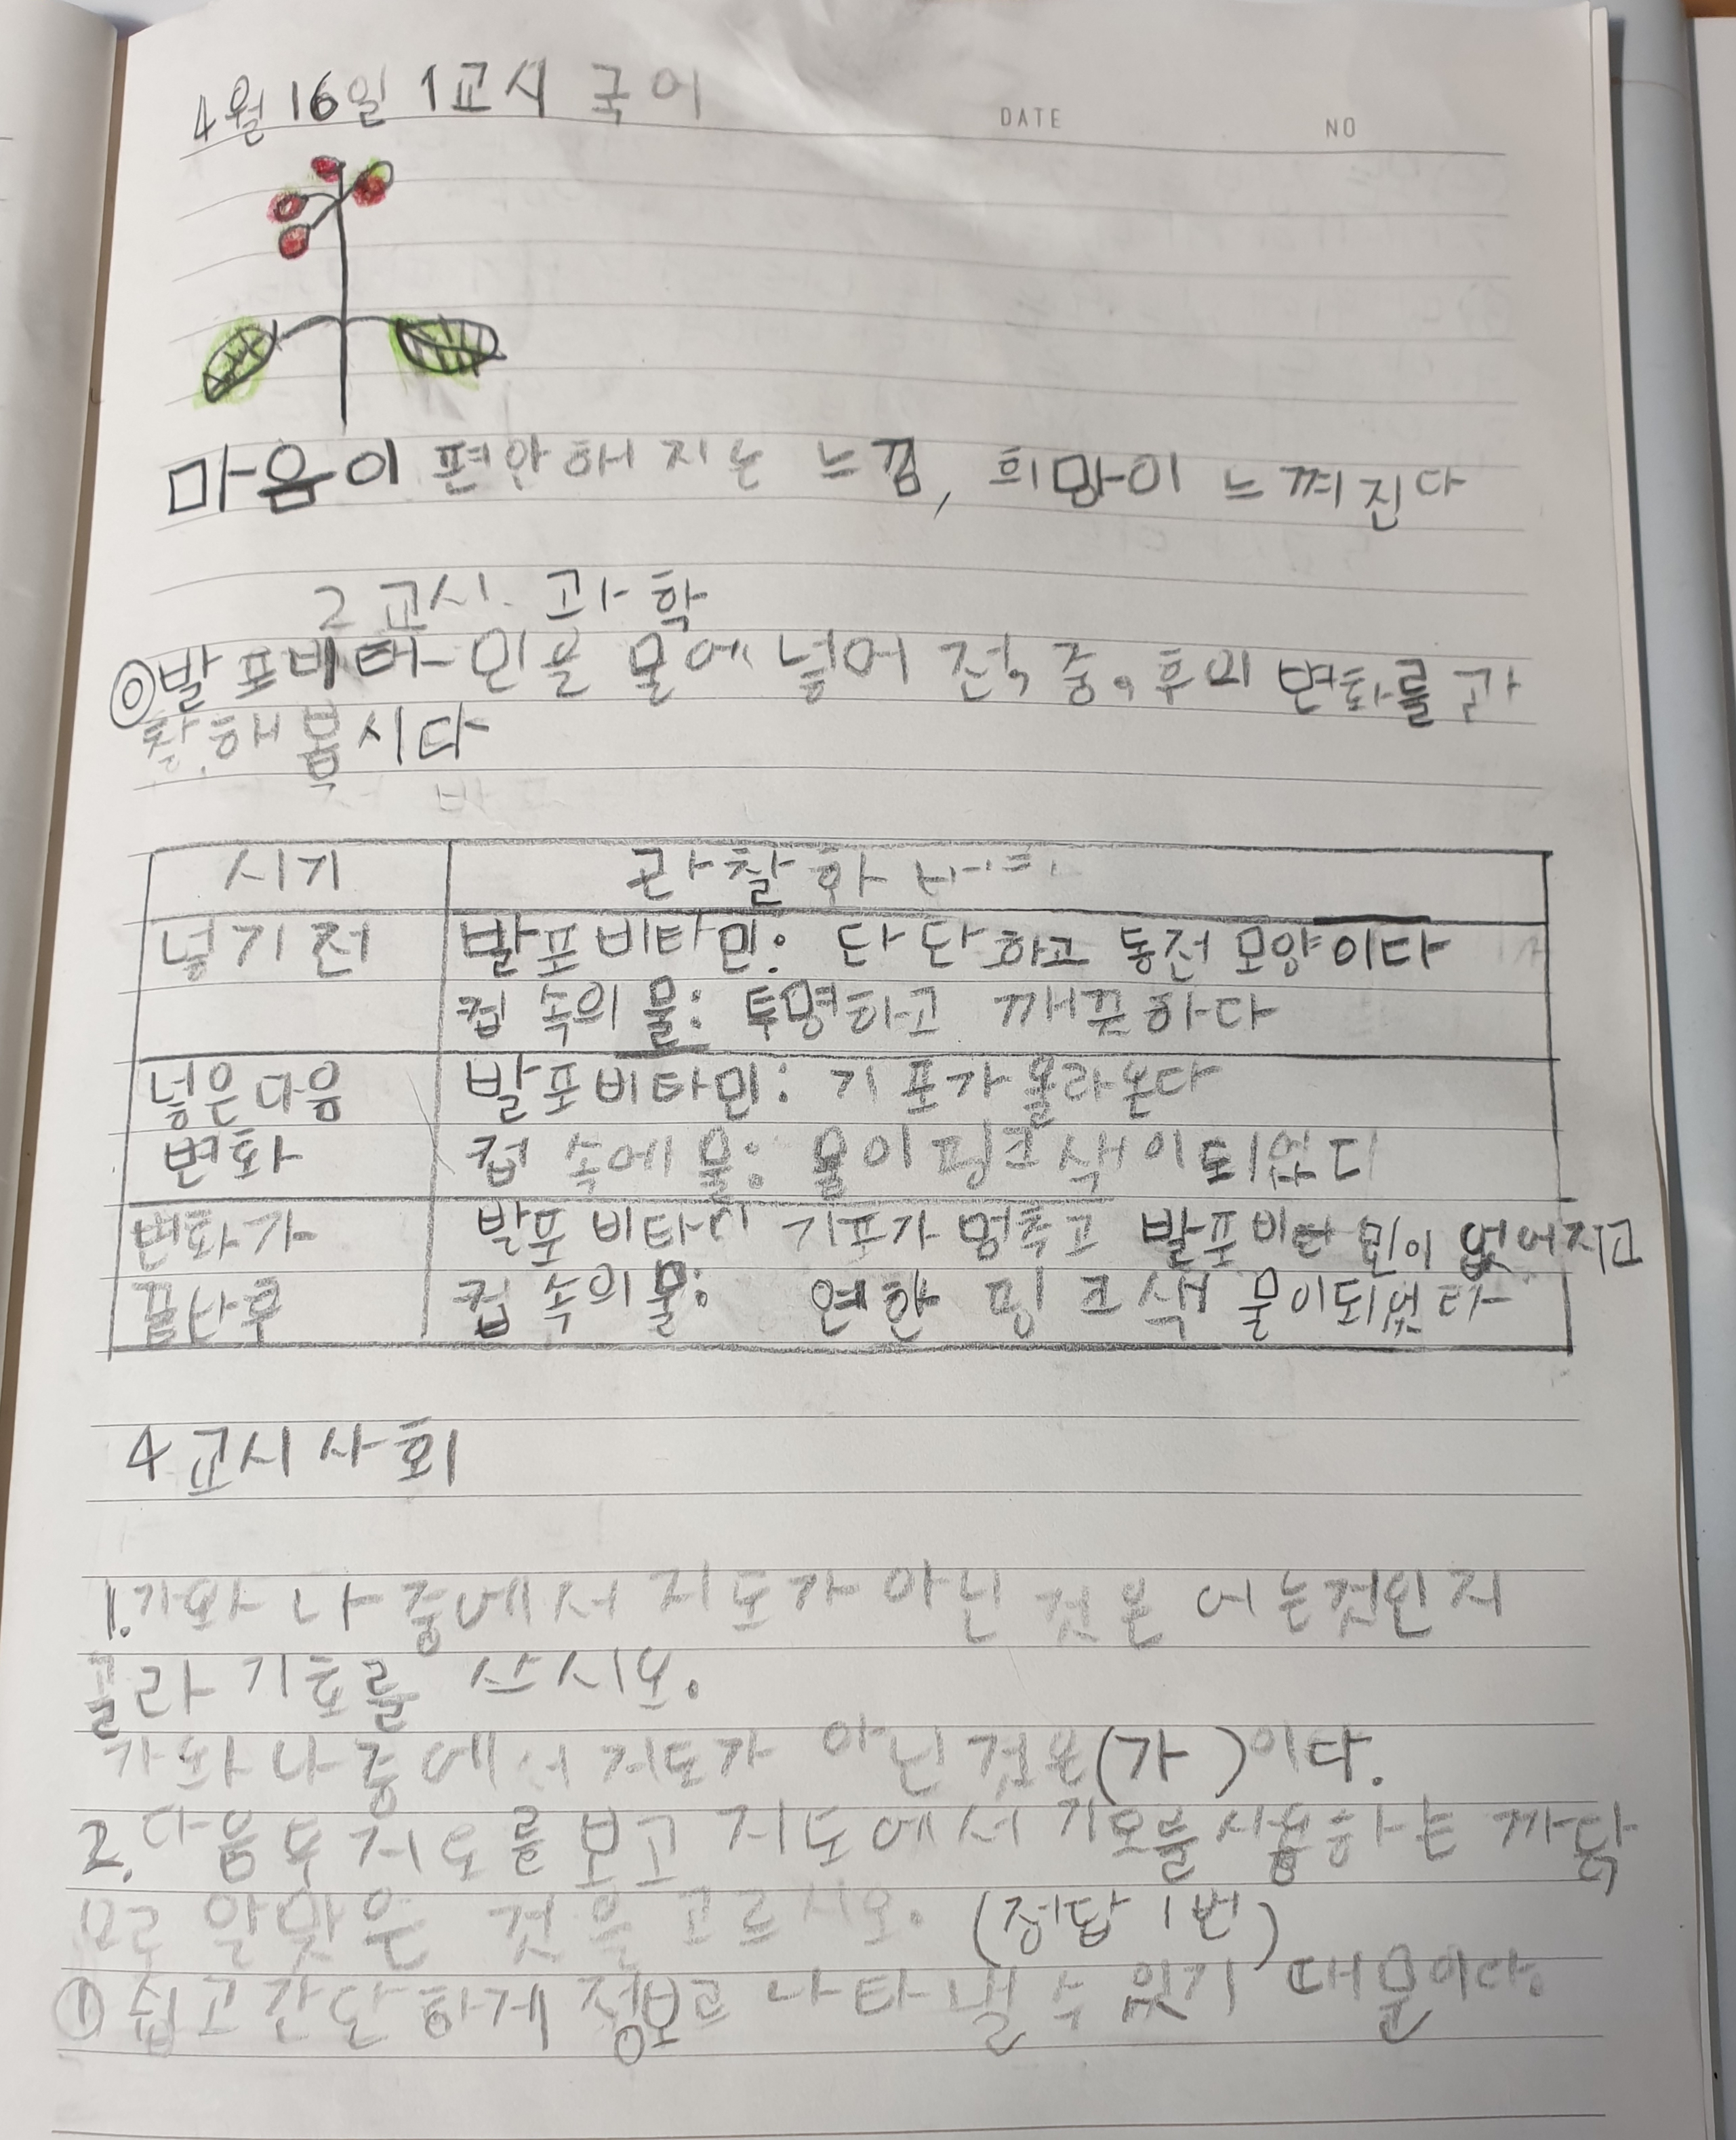 4월 16일 1교시 국어
DATE
NO
마음이 편안해지는 느낌, 희망이 느껴진다
2교시 과학
◎발포비타민을 물에 넣어 전, 중, 후의 변화를 관
찰해 봅시다
시기
관찰한
넣기 전
발포비타민: 단단하고 동전 모양이다
컵 속의 물: 투명하고 깨끗하다
넣은 다음
발포비타민: 기포가 올라온다
변화
컵 속에 물: 물이 핑크색이 되었다
변화가
발포비타민 기포가 멈추고 발포비타민이 없어지고
끝난 후
컵 속의 물: 연한 핑크색 물이되었다
4교시 사회
1. 가와 나 중에서 지도가 아닌 것은 어는것인지
골라 기호를 쓰시오.
가와 나 중에서 지도가 아닌 것은 (가)이다.
2. 다음 두 지도를 보고 지도에서 기호를 사용하는 까닭
으로 알맞은 것을 고르시오. (정답 1번)
① 쉽고 간단하게 정보르 나타낼 수 있기 때문이다.